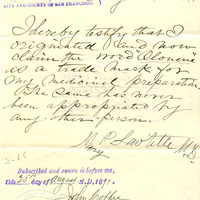 CITY AND COUNTY OF SAN FRANCISCO.
I hereby testify that I
originated and now
claim the word
as a trade mark for
my medicinal preparation
The same has not
been appropriated by
any other person.
M. P. M.D.
Subscribed and sworn to before me,
this 25th day of August A.D. 18
John